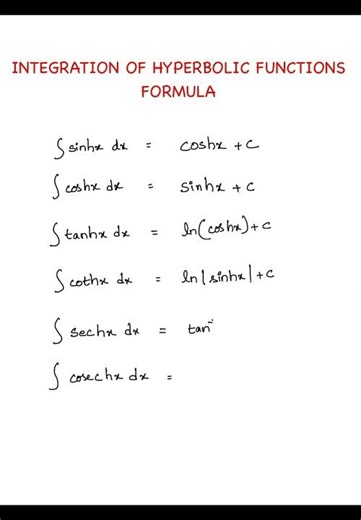 INTEGRATION OF HYPERBOLIC FUNCTIONS
FORMULA
∫ sinhx dx = coshx + c
∫ coshx dx = sinhx + c
∫ tanhx dx = ln(coshx) + c
∫ cothx dx = ln|sinhx| + c
∫ sechx dx = tan⁻
∫ cosechx dx =